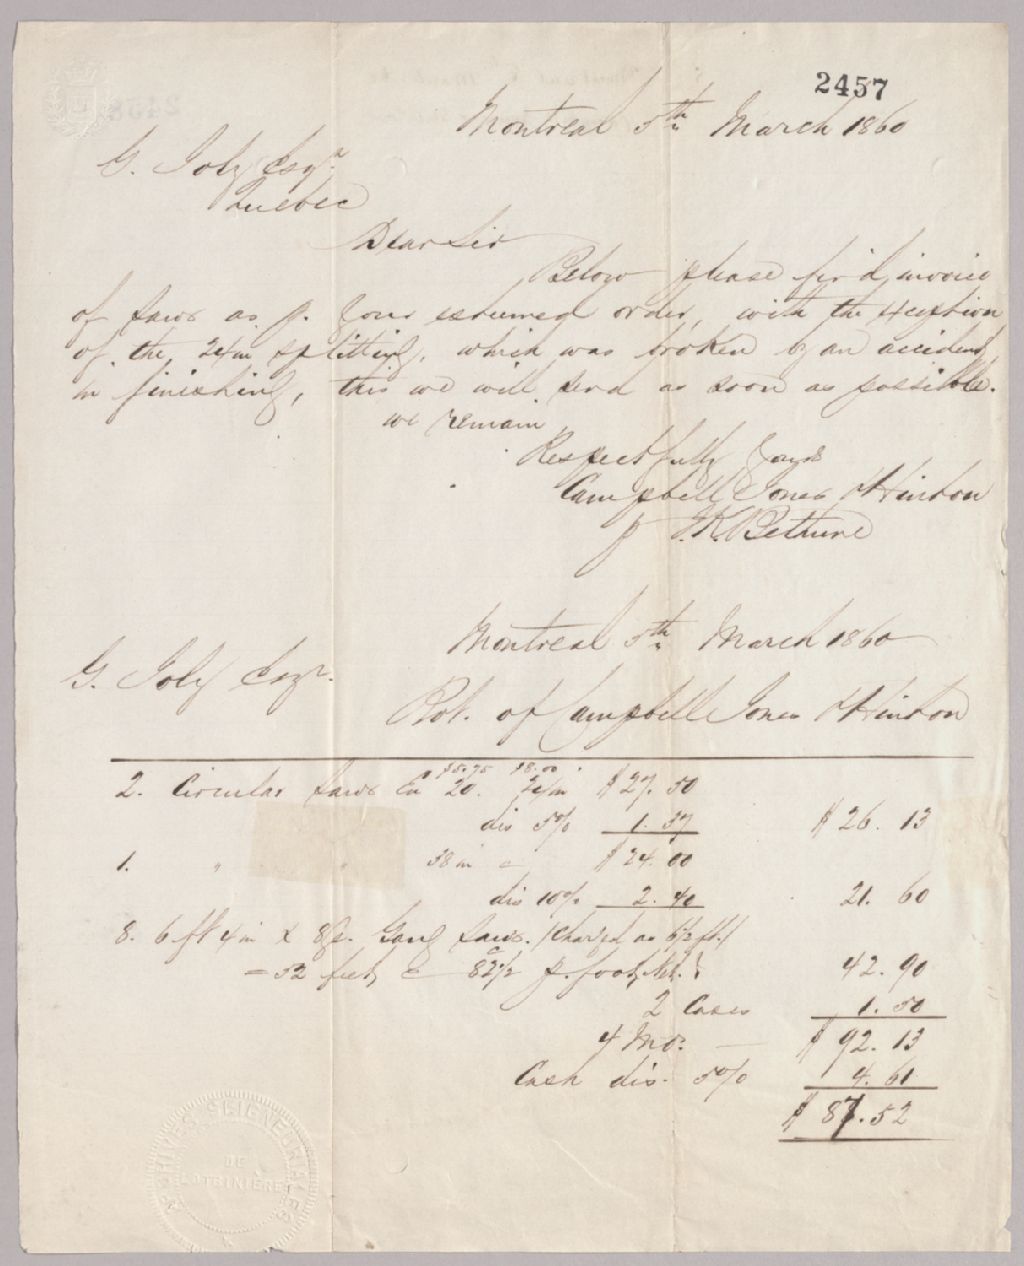 2457
Montreal 5th March 1860
G. Joly Esqr.
Quebec
Dear Sir
Below please find invoice
of saws as p. your esteemed order, with the exception
of the 24in splitting, which was broken by an accident
in finishing, this we will send as soon as possible.
we remain
Respectfully Yours
Campbell Jones & Hinton
p J.K. Bethune
Montreal 5th March 1860
G. Joly Esqr.
Bot. of Campbell Jones & Hinton
$8.00
2. Circular Saws Ea 20. in $27.50
dis 5% 1.37 $26.13
1. " " 38in $24.00
dis 10% 2.40 21.60
8. 6ft 4in x 8in. Gang Saws. (Charged as 6½ft.)
= 52 feet @ 82½c p. foot 42.90
2 Cases 1.50
4 Mo. $92.13
Cash dis. 5% 4.61
$87.52
ARCHIVES SEIGNEURIALES
DE
LOTBINIÈRE